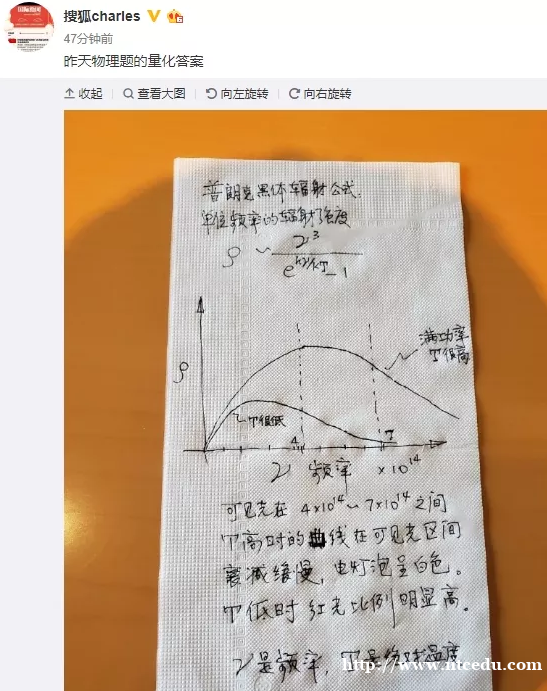 搜狐charles
47分钟前
昨天物理题的量化答案
收起 查看大图 向左旋转 向右旋转
普朗克黑体辐射公式:
单位频率的辐射强度
ρ ~ ν³ / (e^(hν/kT) - 1)
满功率
T很高
ρ
T很低
4
7
ν 频率 ×10¹⁴
可见光在 4×10¹⁴ ~ 7×10¹⁴ 之间
T高时的曲线在可见光区间
衰减缓慢,电灯泡呈白色。
T低时红光比例明显高。
ν是频率,T是绝对温度
http://www.ntcedu.com